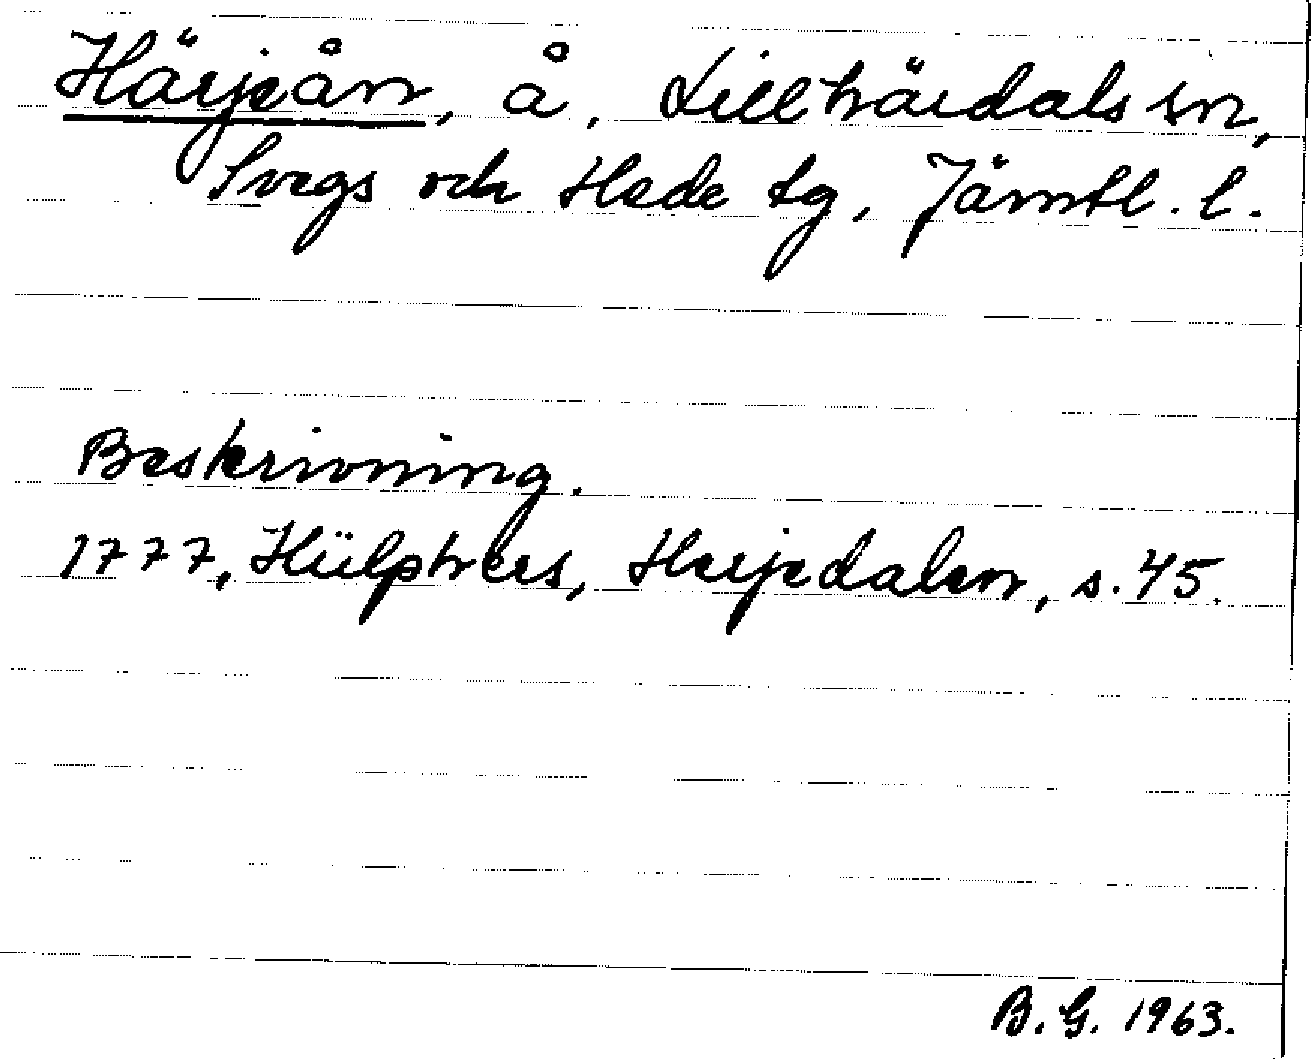 Härjeån, å, Lillhärdals sn,
Svegs och Hede tg, Jämtl. l.
Beskrivning.
1777, Hülphers, Herjedalen, s. 45.
B. G. 1963.